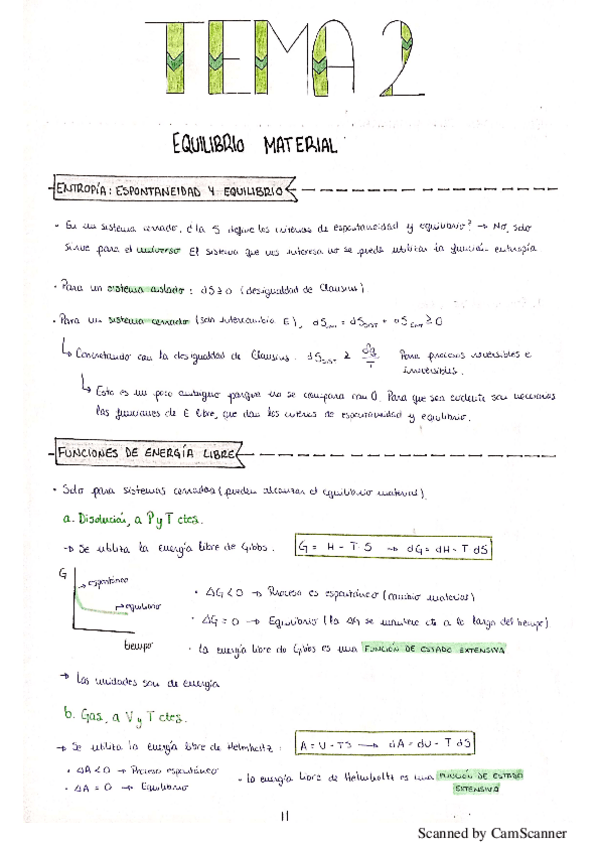 TEMA 2
EQUILIBRIO MATERIAL
ENTROPÍA: ESPONTANEIDAD Y EQUILIBRIO
- En un sistema cerrado, ¿la S define los criterios de espontaneidad y equilibrio? → No, solo
sirve para el universo El sistema que nos interesa no se puede utilizar la función entropía
• Para un sistema aislado: dS ≥ 0 (desigualdad de Clausius)
• Para un sistema cerrado (son intercambio E), dS = dS + dS ≥ 0
↳ Concretando con la desigualdad de Clausius: dS ≥ dq/T Para procesos reversibles e
irreversibles.
↳ Esto es un poco ambiguo porque no se compara con 0. Para que sea evidente son necesarias
las funciones de E libre, que dan los criterios de espontaneidad y equilibrio.
FUNCIONES DE ENERGÍA LIBRE
• Solo para sistemas cerrados (pueden alcanzar el equilibrio material).
a. Disolución, a P y T ctes.
→ Se utiliza la energía libre de Gibbs: G = H - T·S → dG = dH - T dS
G
espontáneo
equilibrio
tiempo
• ΔG < 0 → Proceso es espontáneo (cambio material)
• ΔG = 0 → Equilibrio (la ΔG se mantiene cte a lo largo del tiempo)
• La energía libre de Gibbs es una FUNCIÓN DE ESTADO EXTENSIVA
→ Las unidades son de energía
b. Gas, a V y T ctes.
→ Se utiliza la energía libre de Helmholtz: A = U - TS → dA = dU - T dS
• ΔA < 0 → Proceso espontáneo
• ΔA = 0 → Equilibrio
- La energía libre de Helmholtz es una FUNCIÓN DE ESTADO
EXTENSIVA
11
Scanned by CamScanner